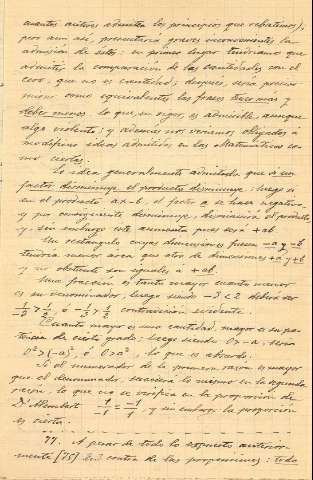 cuantos autores admiten los principios que rebatimos),
pero aun así, presentaría graves inconvenientes la
admisión de éstos: en primer lugar tendríamos que
admitir la comparación de las cantidades con el
cero, que no es cantidad; después, sería preciso
mirar como equivalentes las frases tener mas y
deber menos lo que, en rigor, es admisible, aunque
algo violento; y además nos veríamos obligados a
modificar ideas admitidas en las Matemáticas co-
mo ciertas.
La idea generalmente admitida que si un
factor disminuye el producto disminuye; luego si
en el producto a x-b, el factor a se hace negativo
y por consiguiente disminuye, disminuirá el producto
y, sin embargo este aumenta pues será +ab.
Un rectángulo cuyas dimensiones fuesen -a y -b
tendría menor area que otro de dimensiones +a y +b
y no obstante son iguales á +ab.
Una fracción es tanto mayor cuanto menor
es su denominador, luego siendo -3<2 deberá ser
contradicción evidente.
Cuanto mayor es una cantidad, mayor es su po-
tencia de cierto grado; luego siendo 0>-a, sería
0²>(-a)², ó 0>a², lo que es absurdo.
Si el numerador de la primera razon es mayor
que el denominador, sucederá lo mismo en la segunda
razón, lo que no se verifica en la proporción de
D'Alembert 1/-1 = -1/1, y sin embargo la proporción
es cierta.
77. A pesar de todo lo expuesto anterior-
mente [75] en contra de las proposiciones: todo